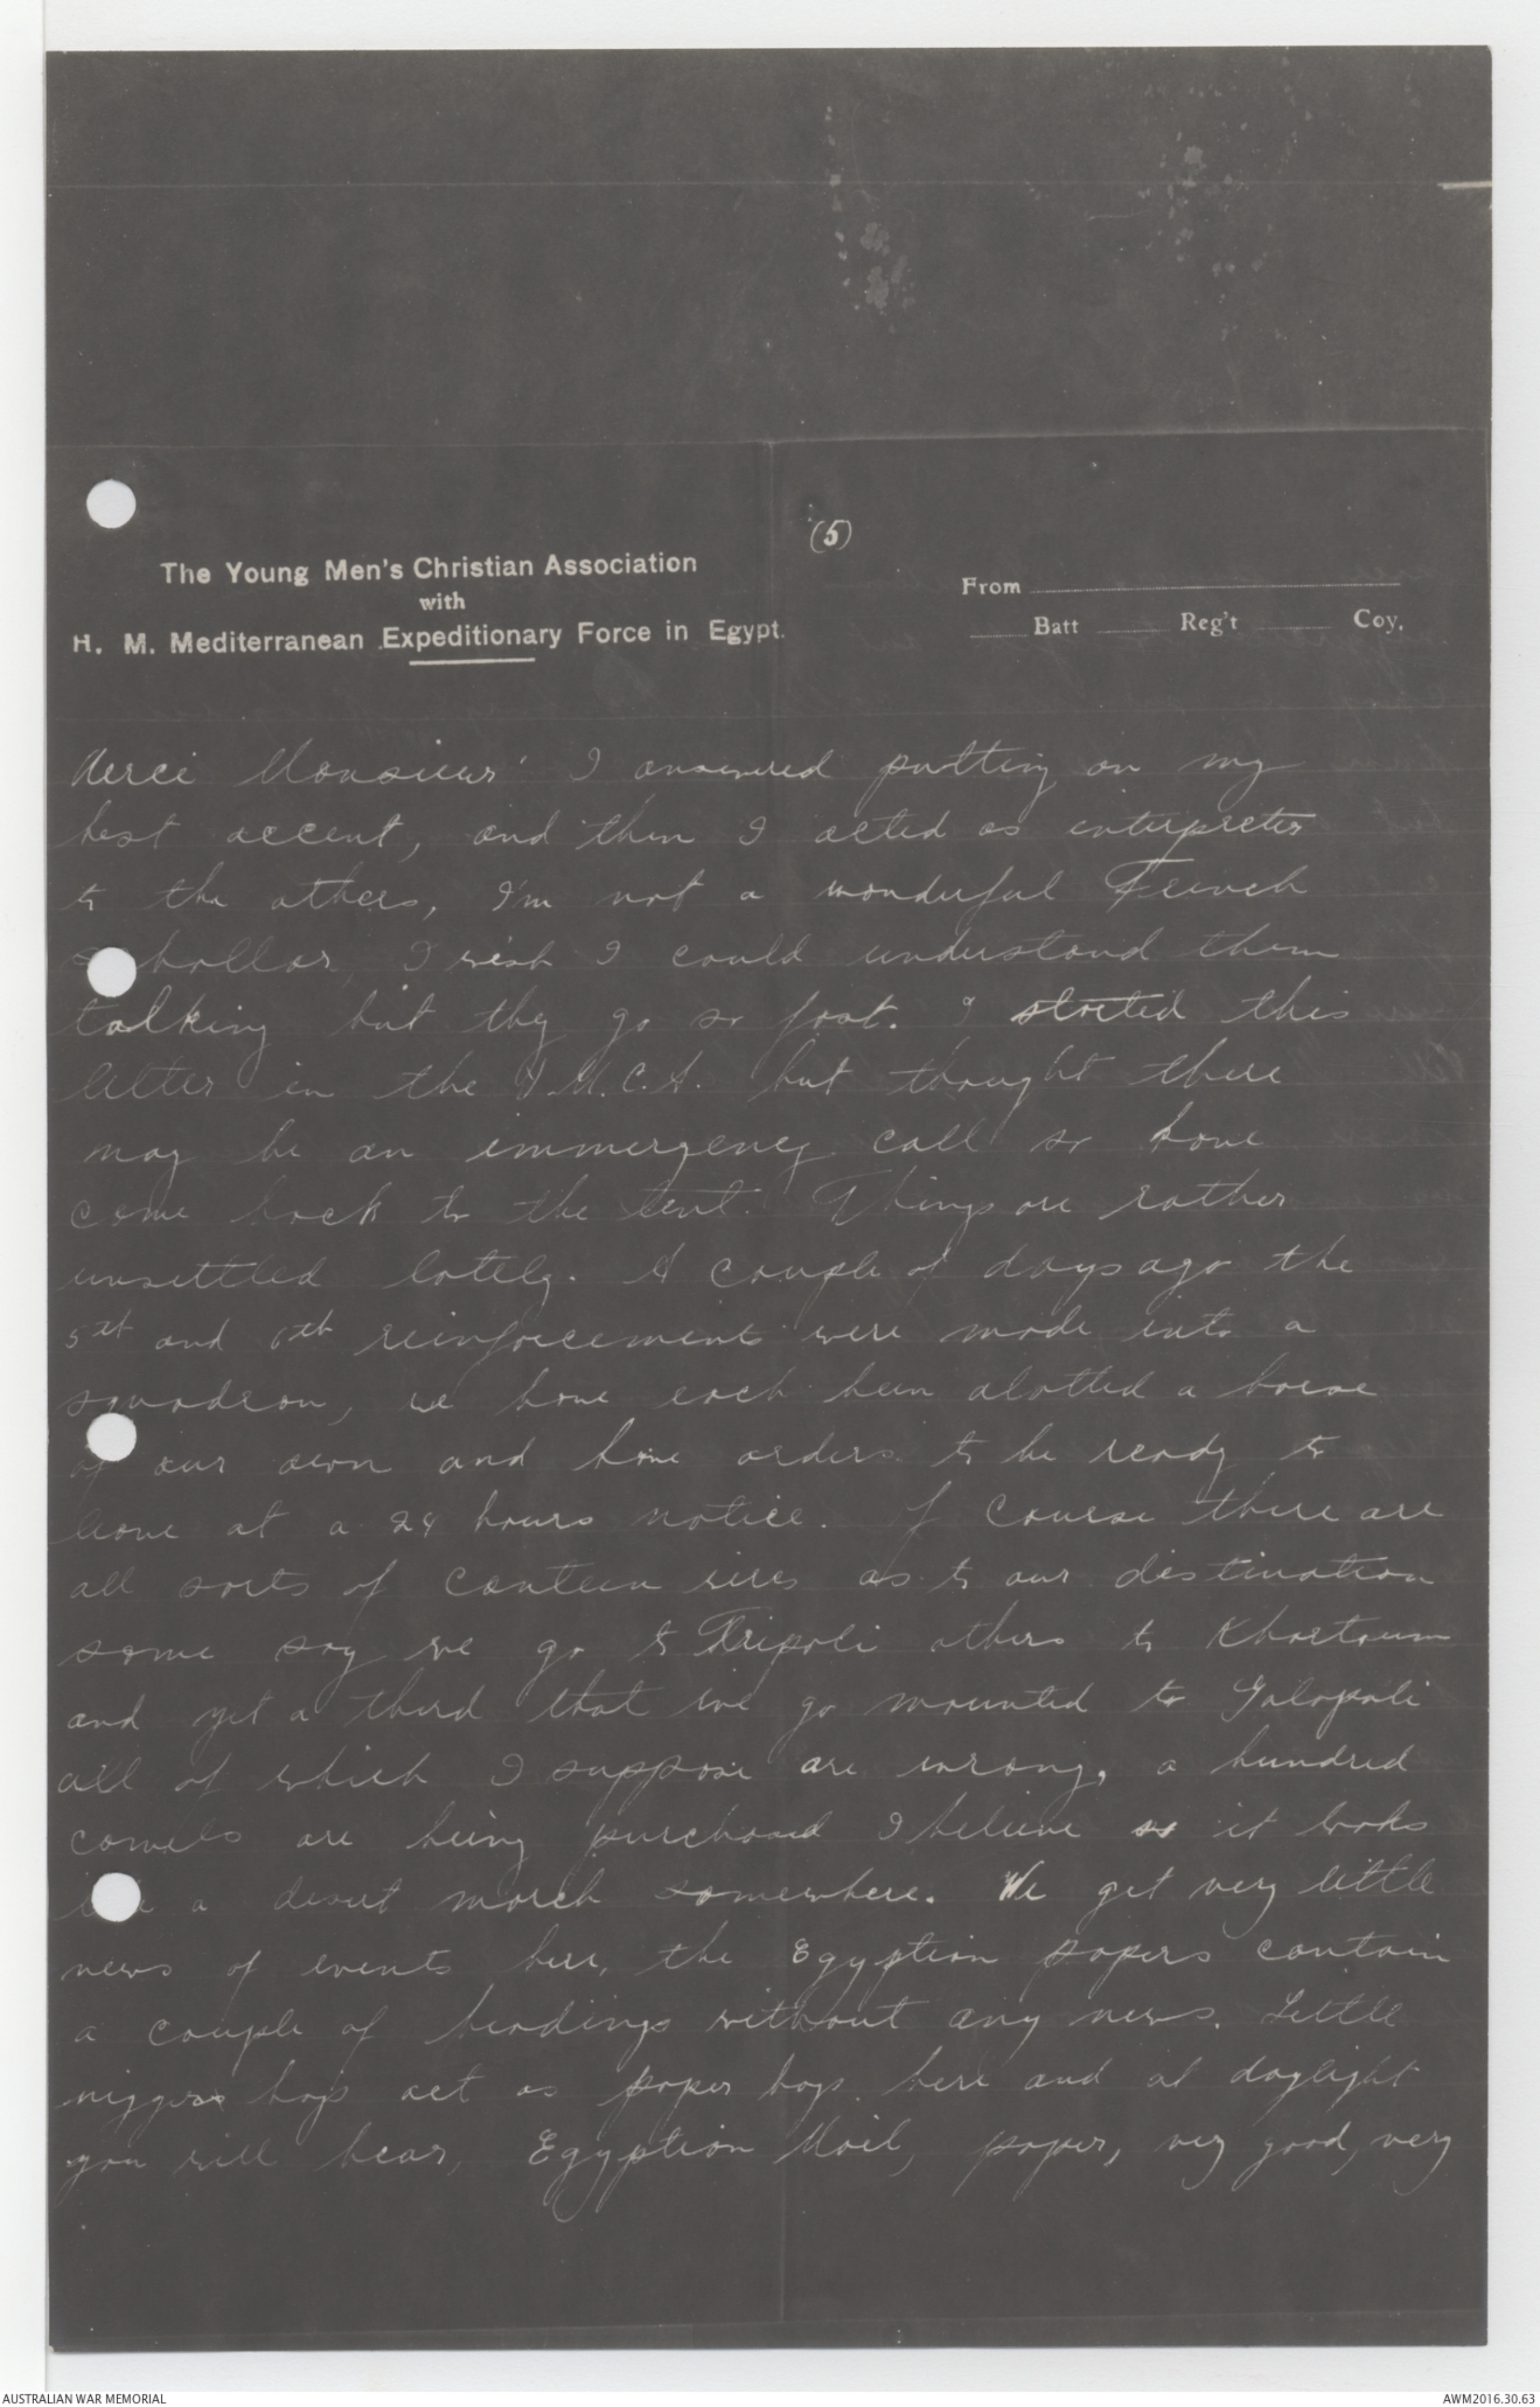 (5)
The Young Men's Christian Association
with
H. M. Mediterranean Expeditionary Force in Egypt.
From
Batt Reg't Coy.
Merci Monsieur' I answered putting on my
best accent, and then I acted as interpreter
to the others, I'm not a wonderful French
schollar, I wish I could understand them
talking but they go so fast. I started this
letter in the Y.M.C.A. but thought there
may be an immergency call so have
come back to the tent. Things are rather
unsettled lately. A couple of days ago the
5th and 6th reinforcements were made into a
squadron, we have each been alotted a horse
of our own and have orders to be ready to
leave at a 24 hours notice. Of course there are
all sorts of canteen wires as to our destination
some say we go to Tripoli others to Khartoum
and yet a third that we go mounted to Galopoli
all of which I suppose are wrong, a hundred
camels are being purchased I believe so it looks
like a desert march somewhere. We get very little
news of events here, the Egyptian papers contain
a couple of headings without any news. Little
niggers boys act as paper boys here and at daylight
you will hear, Egyptian Mail, paper, very good, very
AUSTRALIAN WAR MEMORIAL
AWM2016.30.63